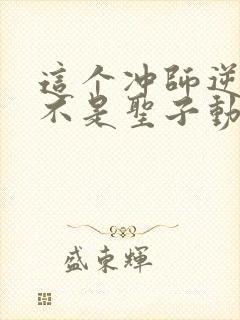 這个冲師逆
不是聖子動
盛東輝